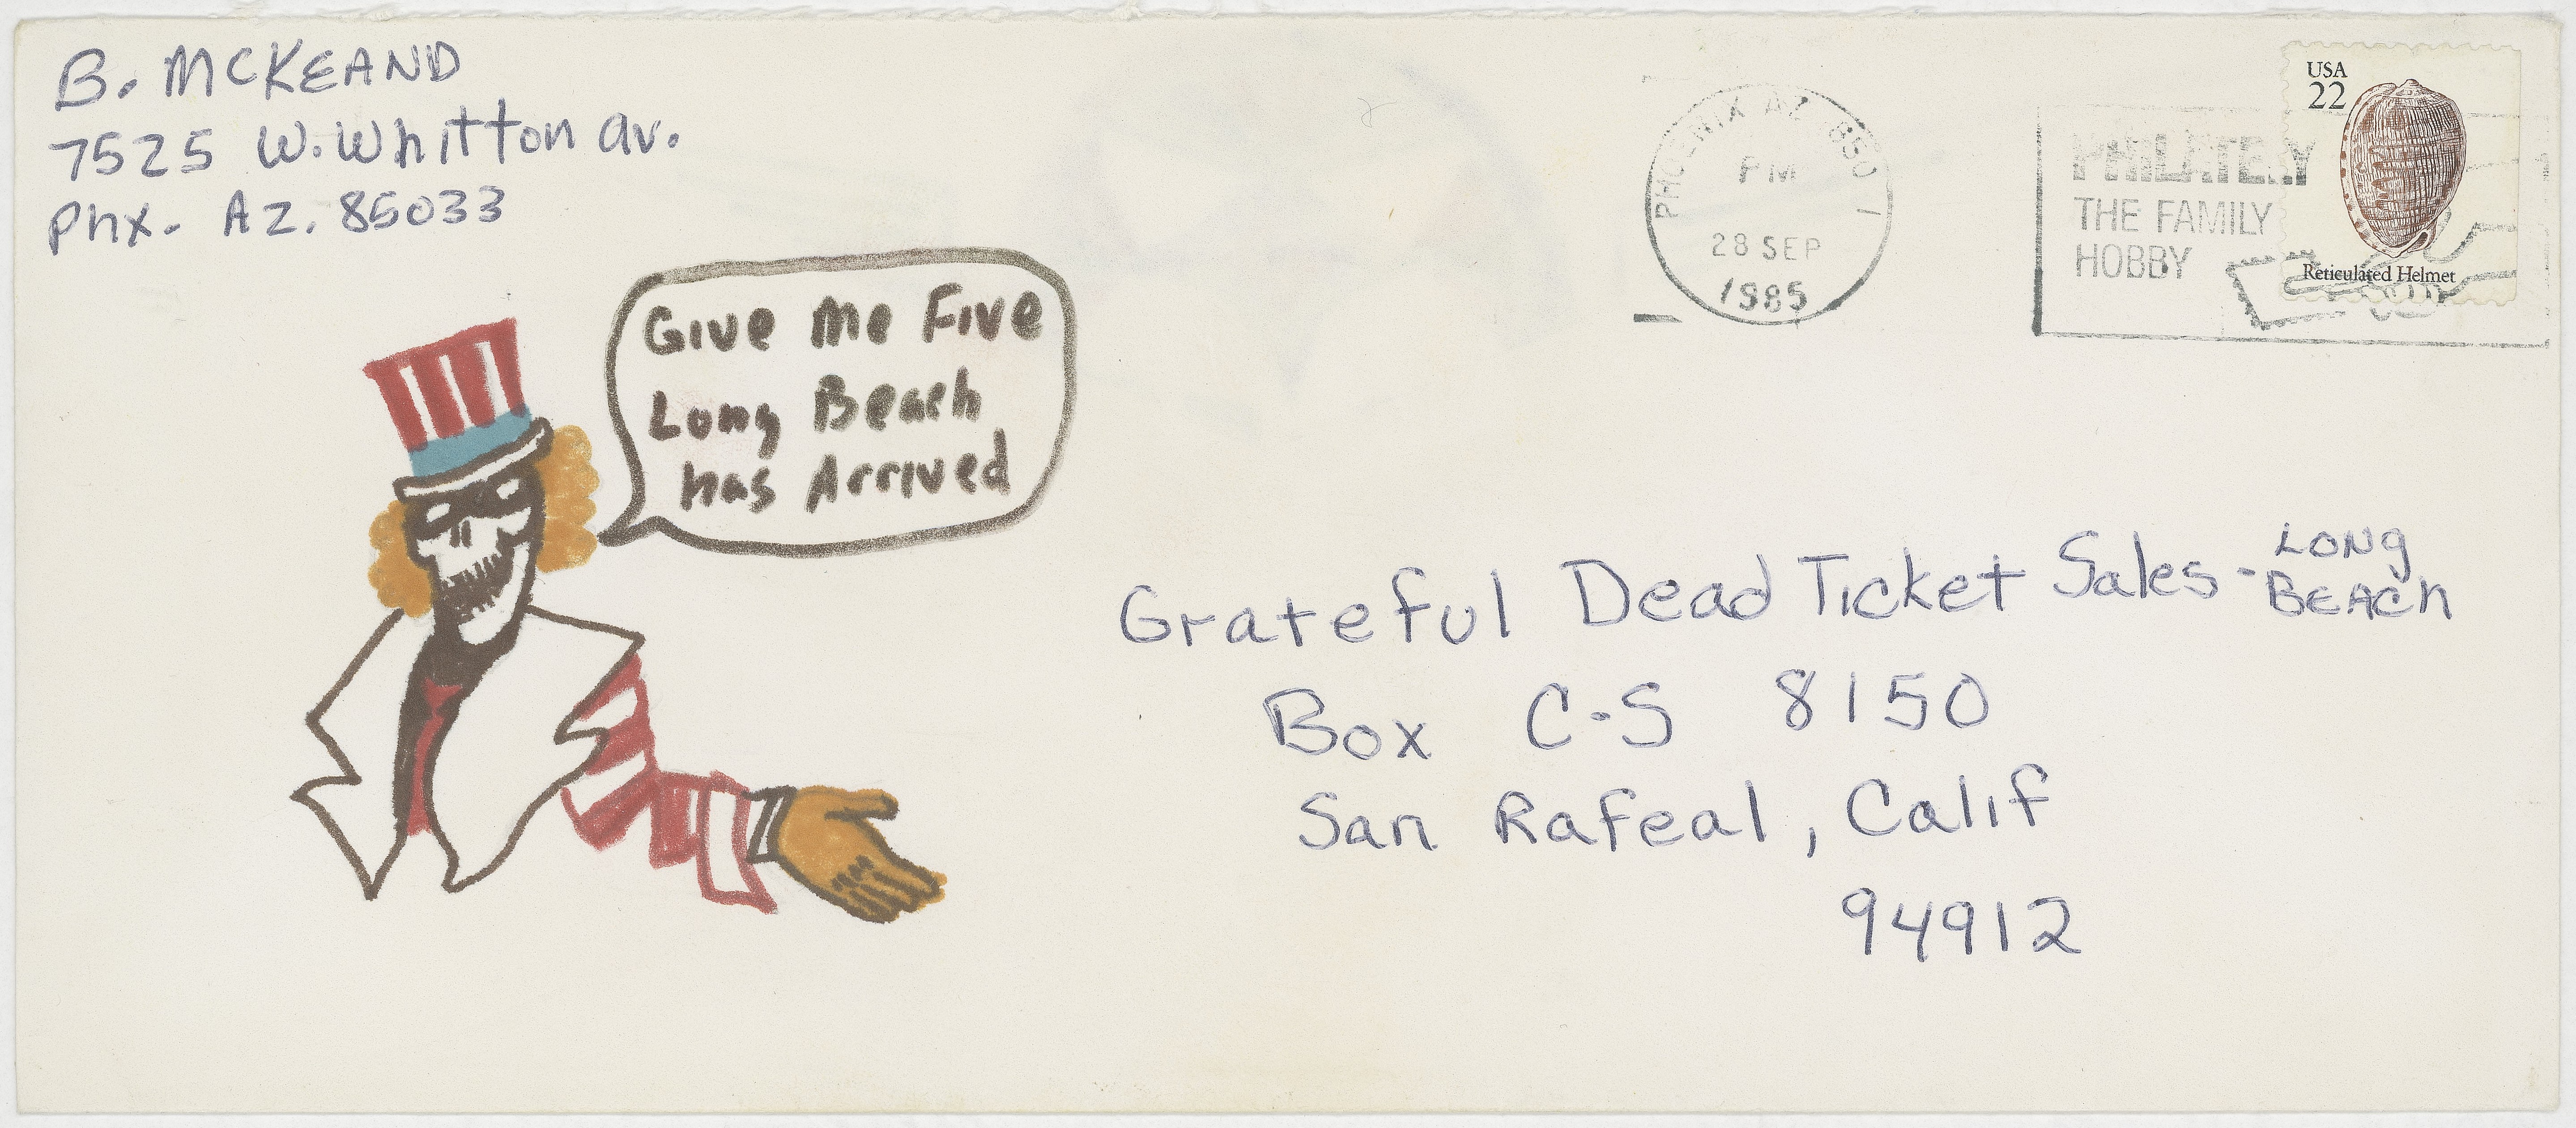 B. McKEAND
7525 W. Whitton av.
Phx. AZ. 85033
PHOENIX AZ 850
PM
28 SEP
1985
PHILATELY
THE FAMILY
HOBBY
USA
22
Reticulated Helmet
Give Me Five
Long Beach
has Arrived
Grateful Dead Ticket Sales - LONG BEACH
Box C-S 8150
San Rafeal, Calif
94912